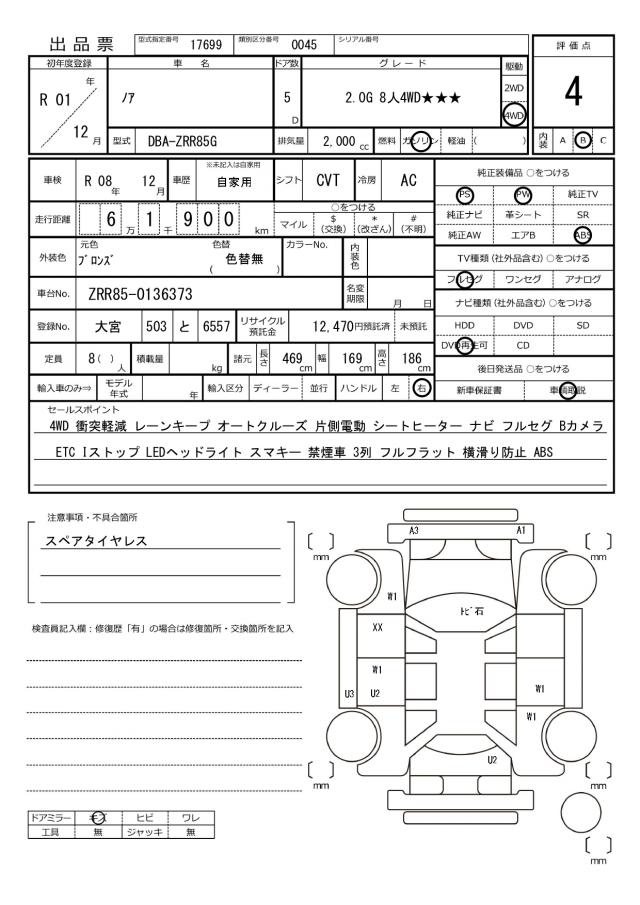 出品票 型式指定番号 17699 類別区分番号 0045 シリアル番号
評価点
4
初年度登録 車名 ドア数 グレード 駆動
R 01 年 ノア 5 D 2.0G 8人4WD★★★ 2WD
12 月 4WD
型式 DBA-ZRR85G 排気量 2,000 cc 燃料 ガソリン 軽油 ( )
内装 A B C
車検 R 08 年 12 月 車歴 ※未記入は自家用 自家用 シフト CVT 冷房 AC
走行距離 6 万 1 千 9 0 0 km
○をつける
マイル $(交換) *(改ざん) #(不明)
外装色 元色 ブロンズ 色替 ( 色替無 ) カラーNo. 内装色
車台No. ZRR85-0136373 名変期限 月 日
登録No. 大宮 503 と 6557 リサイクル預託金 12,470円預託済 未預託
定員 8( )人 積載量 kg 諸元 長さ 469 cm 幅 169 cm 高さ 186 cm
輸入車のみ⇒ モデル年式 年 輸入区分 ディーラー 並行 ハンドル 左 右
純正装備品 ○をつける
PS PW 純正TV
純正ナビ 革シート SR
純正AW エアB ABS
TV種類(社外品含む)○をつける
フルセグ ワンセグ アナログ
ナビ種類(社外品含む)○をつける
HDD DVD SD
DVD再生可 CD
後日発送品 ○をつける
新車保証書 車輌取説
セールスポイント
4WD 衝突軽減 レーンキープ オートクルーズ 片側電動 シートヒーター ナビ フルセグ Bカメラ
ETC Iストップ LEDヘッドライト スマキー 禁煙車 3列 フルフラット 横滑り防止 ABS
注意事項・不具合箇所
スペアタイヤレス
検査員記入欄:修復歴「有」の場合は修復箇所・交換箇所を記入
ドアミラー キズ ヒビ ワレ
工具 無 ジャッキ 無
A3 A1
mm mm
W1
トビ石
XX
W1
U3 U2 W1
W1
U2
mm mm
mm